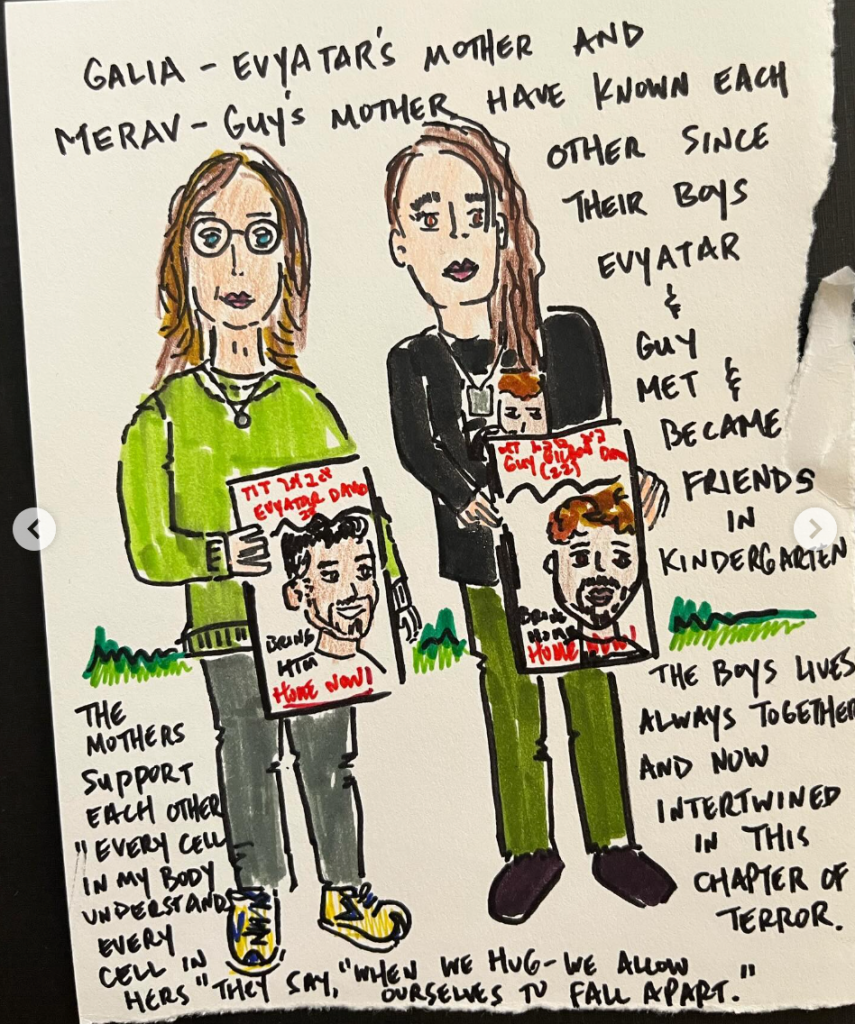 GALIA - EVYATAR'S MOTHER AND
MERAV - GUY'S MOTHER HAVE KNOWN EACH
OTHER SINCE
THEIR BOYS
EVYATAR
&
GUY
MET &
BECAME
FRIENDS
IN
KINDERGARTEN
EVYATAR
BRING
HIM
HOME NOW!
GUY
(22)
HOME NOW!
THE BOYS LIVES
ALWAYS TOGETHER
AND NOW
INTERTWINED
IN THIS
CHAPTER OF
TERROR.
THE
MOTHERS
SUPPORT
EACH OTHER
"EVERY CELL
IN MY BODY
UNDERSTANDS
EVERY
CELL IN
HERS" THEY SAY, "WHEN WE HUG - WE ALLOW
OURSELVES TO FALL APART."